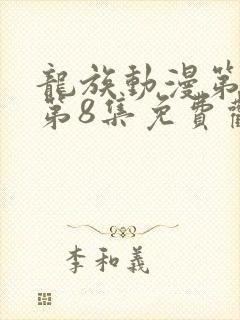 龍族動漫第
第8集免費
李和義